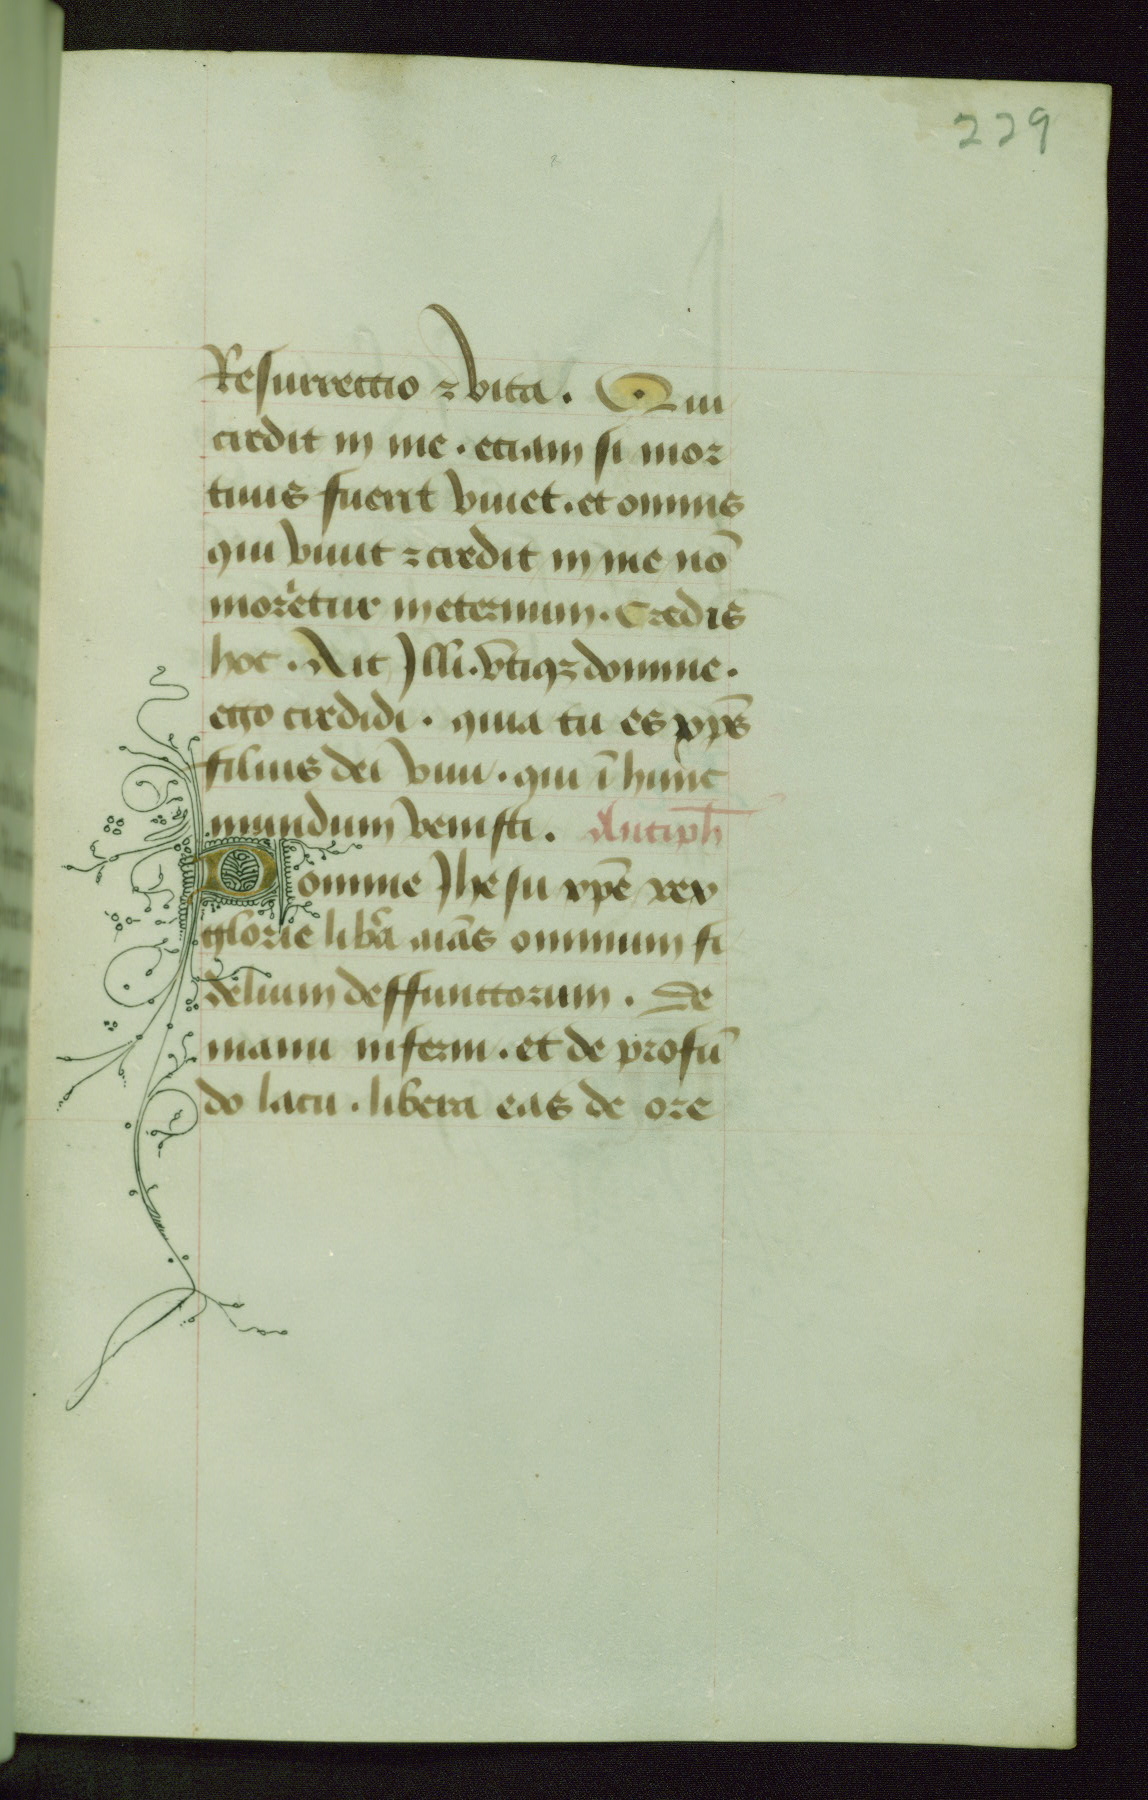 229
Resurrectio ⁊ vita. Qui
credit in me. etiam si mor
tuus fuerit viuet. et omnis
qui viuit ⁊ credit in me nō
moretur ineternum. Credis
hoc. Ait Illi. vtiqꝫ domine.
ego credidi. quia tu es xp̄s
filius dei viui. qui ī hunc
mundum venisti. Antiph
Domine Ihesu xp̄e rex
glorie liba aīas omnium fi
delium deffunctorum. De
manu inferni. et de profū
do lacu. libera eas de ore